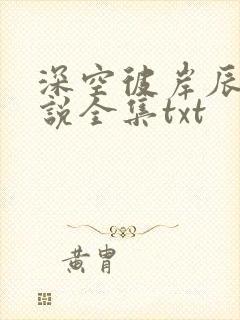 深空彼岸辰
說全集txt
黃胄